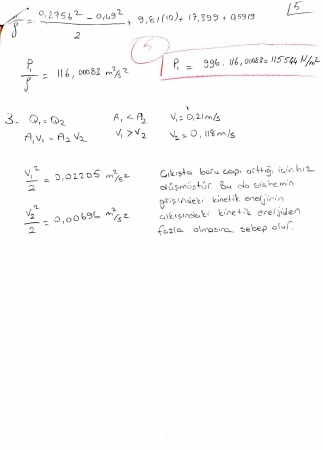 5
P₁/ρ = (0,2756² - 0,49²)/2 + 9,81(10) + 17,399 + 0,5919
5
P₁/ρ = 116,00083 m²/s²
P₁ = 996 . 116,00083 = 115544 N/m²
3- Q₁ = Q₂ A₁ < A₂ V₁ = 0,21 m/s
A₁V₁ = A₂V₂ V₁ > V₂ V₂ = 0,118 m/s
V₁²/2 = 0,02205 m²/s²
V₂²/2 = 0,00696 m²/s²
Çıkışta boru çapı arttığı için hız
düşmüştür. Bu da sistemin
girişindeki kinetik enerjinin
çıkışındaki kinetik enerjiden
fazla olmasına sebep olur.